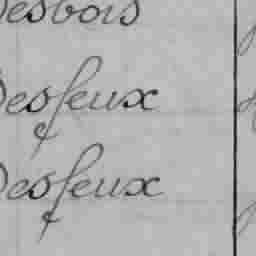 Desbois
Desfeux
Desfeux